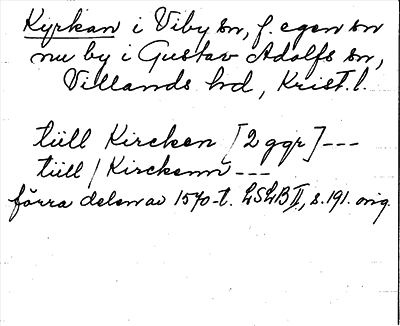 Kyrkan i Viby sn, f. egen sn
nu by i Gustav Adolfs sn,
Villands hd, Krist. l.
tüll Kircken [2 ggr] ---
tüll / Kirckenn ---
förra delen av 1570-t. LSLB II, s. 191. orig.